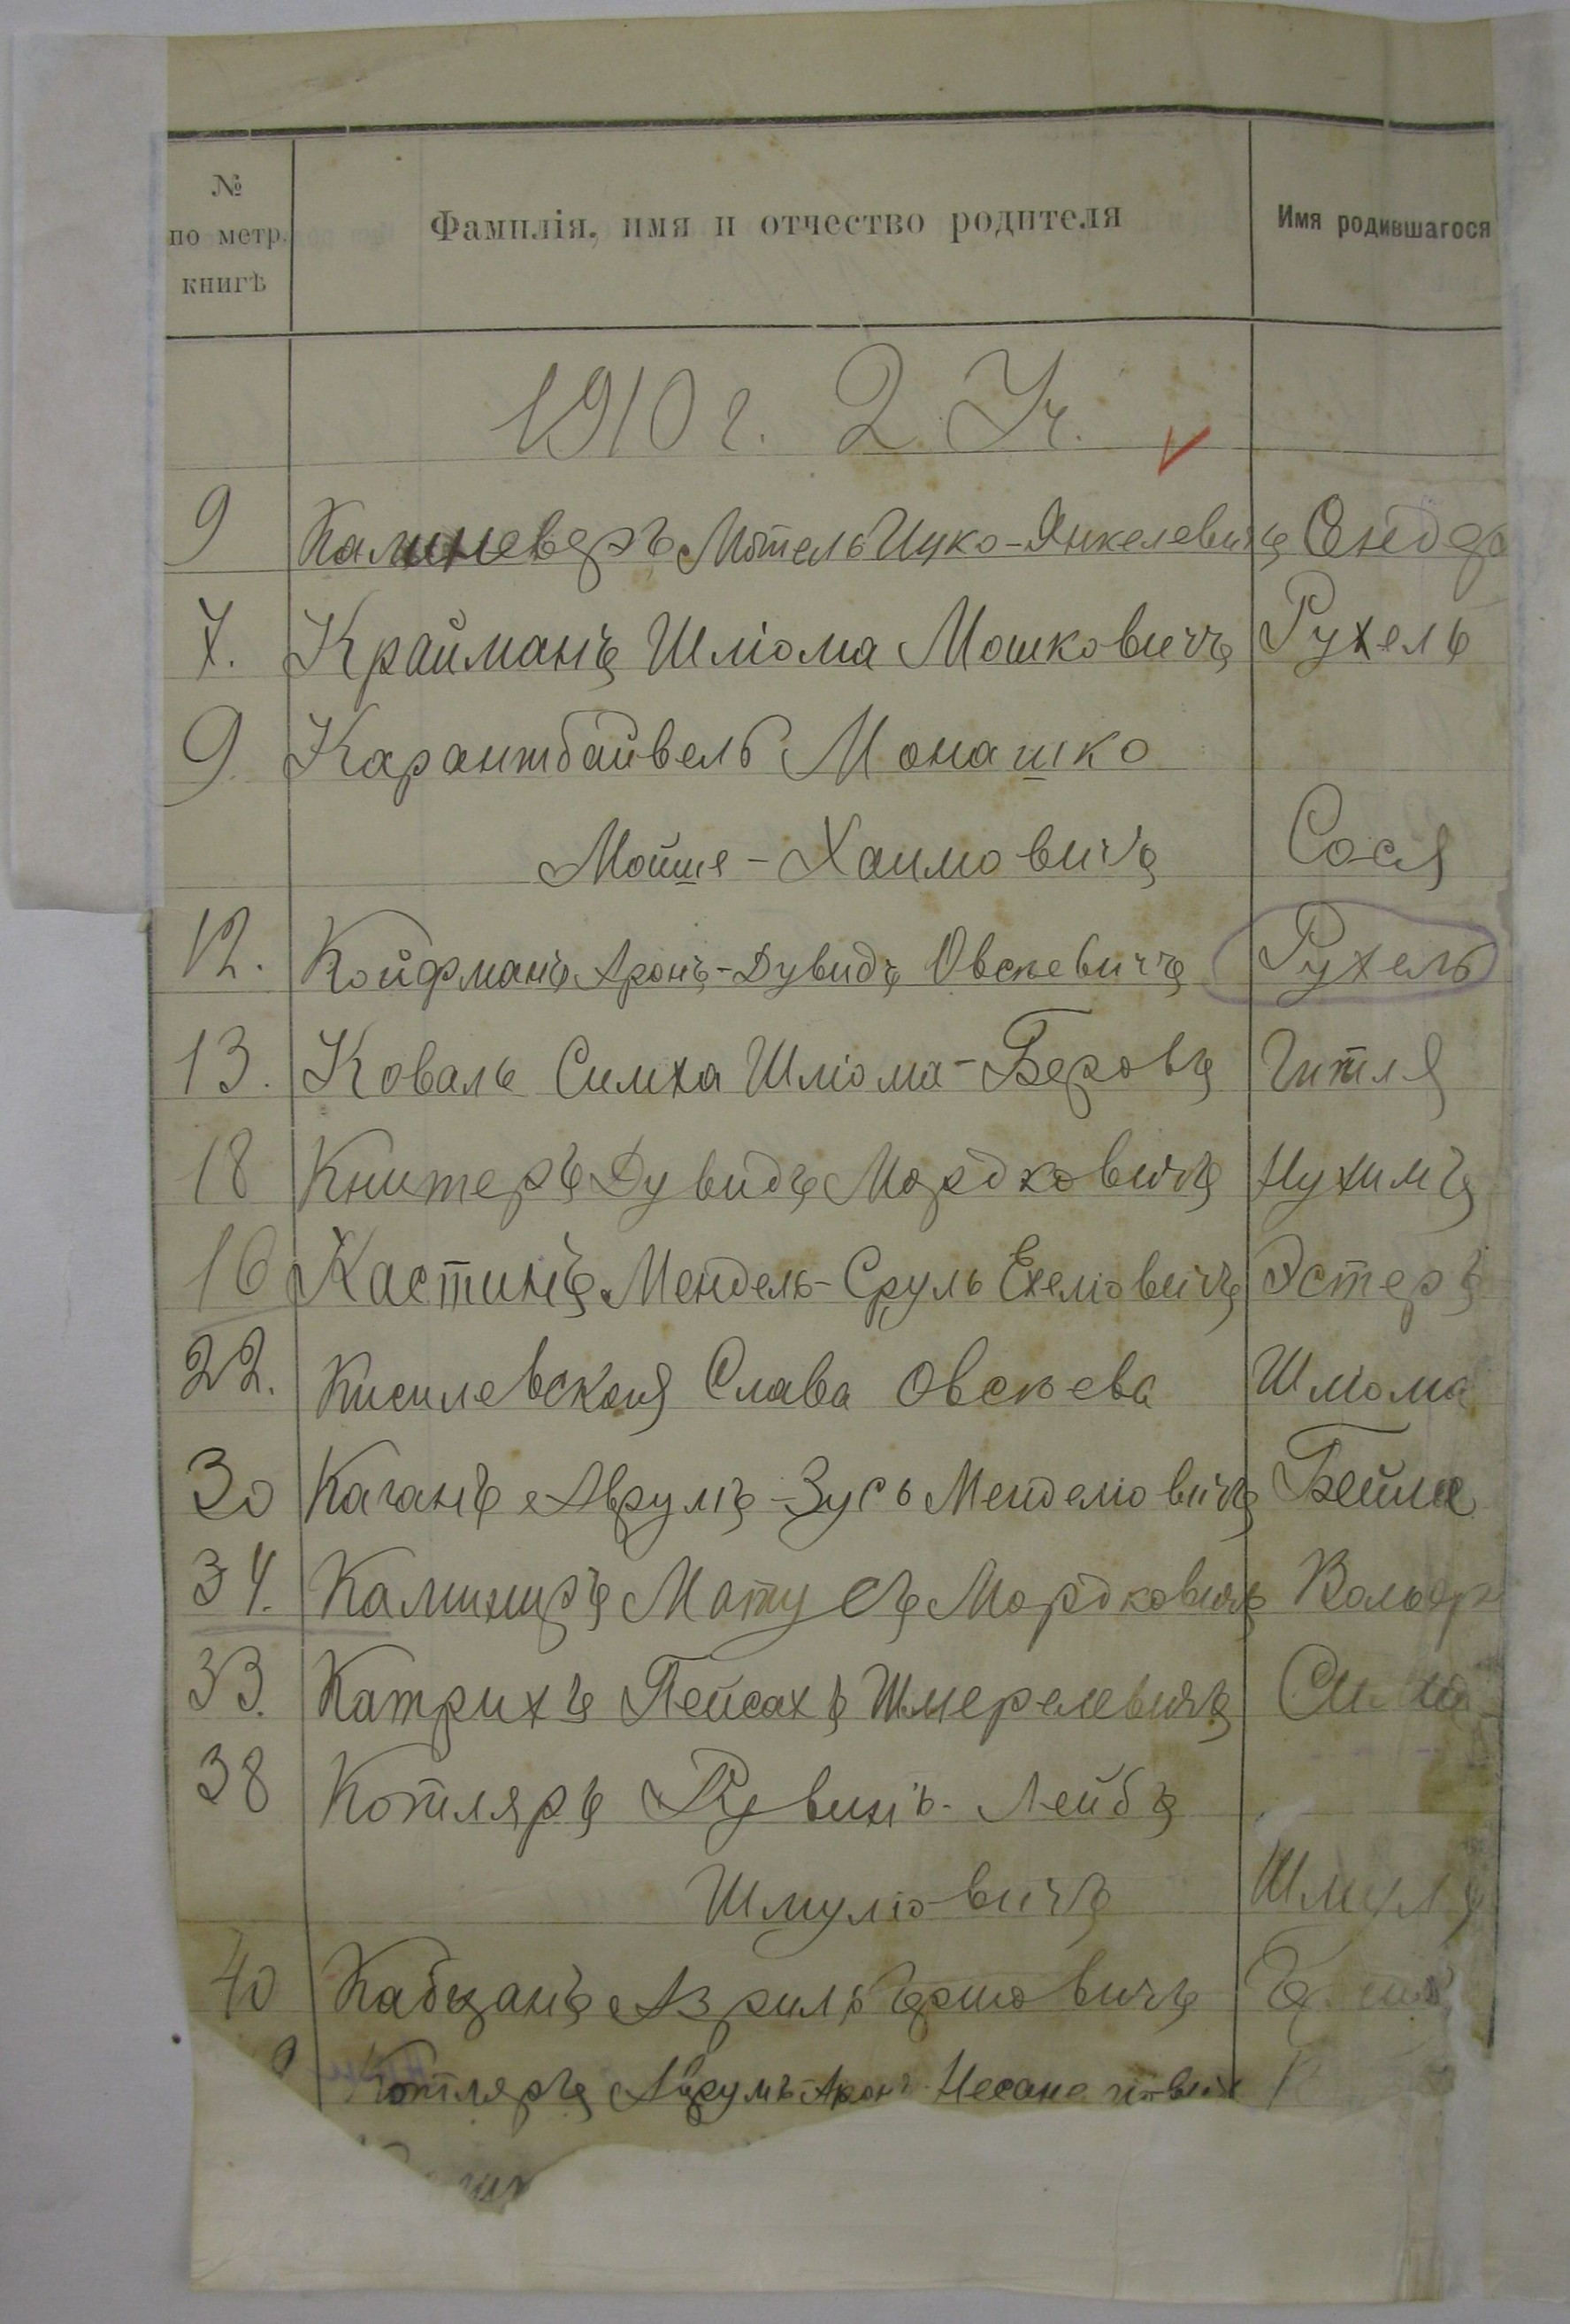 № по метр. книгѣ
Фамилія, имя и отчество родителя
Имя родившагося
1910 г. 2 Уч.
9 Калиневеръ Мотель Ицко-Янкелевичъ Сндер
7. Крайманъ Шліома Мошковичъ Рухель
9. Карантбайвель Монашко
Мойше-Хаимовичъ Сося
12. Койфманъ Аронъ-Дувидъ Овсѣевичъ Рухель
13. Коваль Симха Шліома-Беровъ Гитля
18 Книтеръ Дувидъ Мордковичъ Нухимъ
16 Кастинъ Мендель-Сруль Ехеліовичъ Эстеръ
22. Кисилевская Слава Овсѣева Шліома
30 Каганъ Аврумъ-Зусь Менделіовичъ Бейла
34. Калихиръ Матусъ Мордковичъ Вольф
33. Катрихъ Пейсахъ Шмерелевичъ Сима
38 Котляръ Рувинъ-Лейбъ
Шмуліовичъ Шмуль
40 Кабцанъ Азриль Гершовичъ
Котляръ Аврумъ-Аронъ